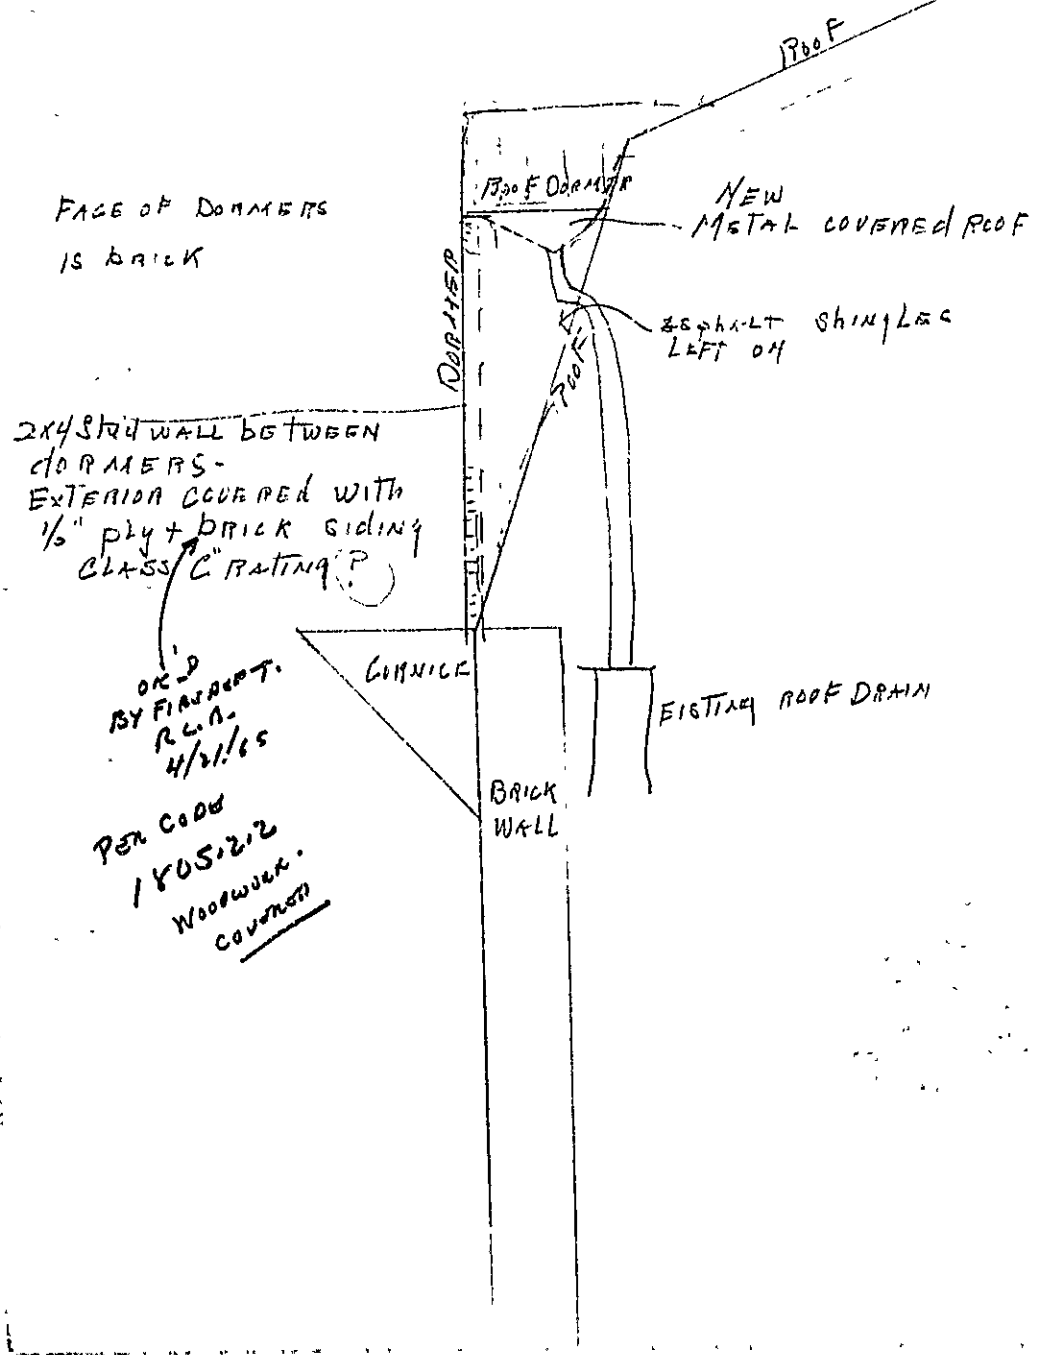 ROOF
FACE OF DORMERS
IS BRICK
ROOF DORMER
NEW
METAL COVERED ROOF
DORMER
ROOF
asphalt shingles
LEFT ON
2x4 Stud WALL bETWEEN
dORMERS-
EXTERIOR COVERED WITh
1/2" ply + bRICK SIdINg
CLASS "C" RATINg?
CORNICE
OK'D
BY FIRE DEPT.
4/21/65
PER CODE
1805.2.2
WOODWORK.
COVERED
EISTINg ROOF DRAIN
BRICK
WALL